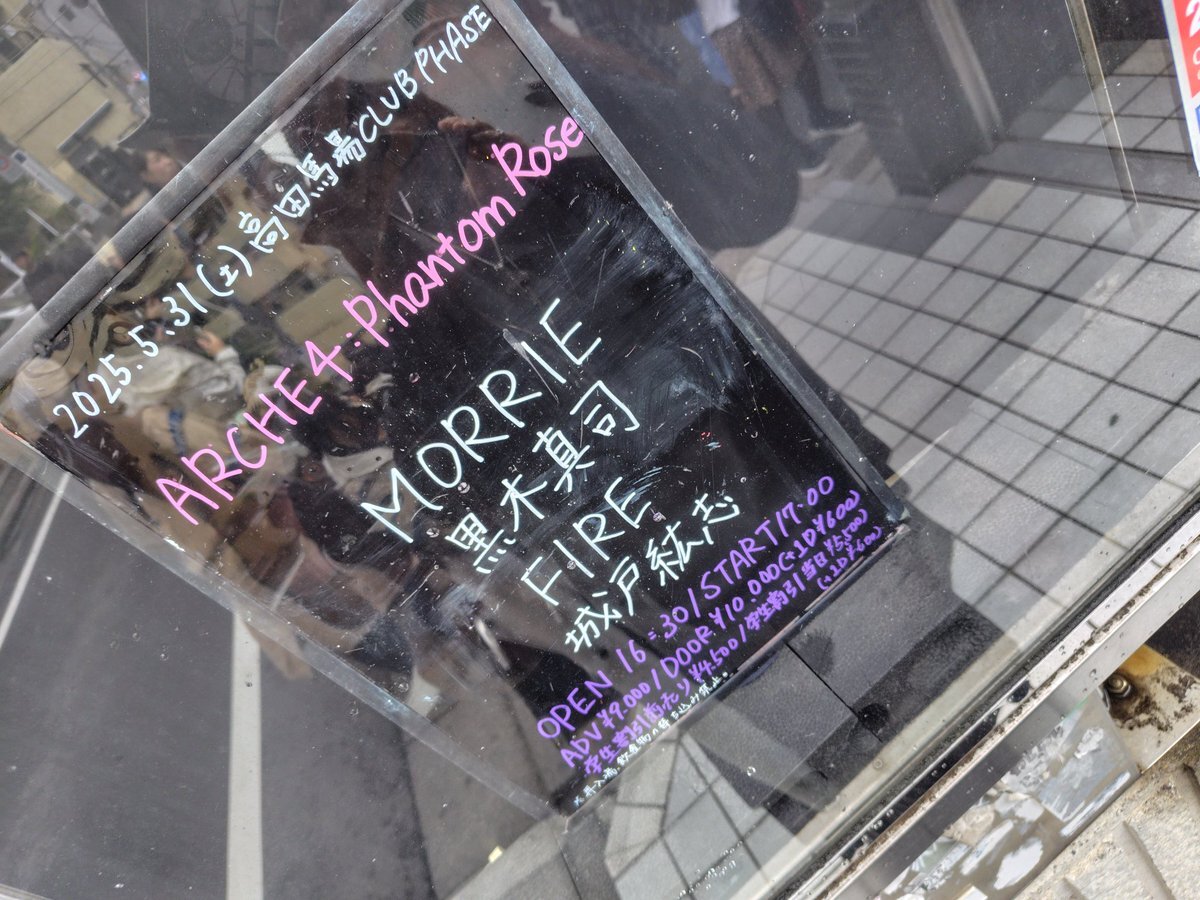 2025.5.31(土)高田馬場CLUB PHASE
ARCHE4:Phantom Rose
MORRIE
黒木真司
FIRE
城戸紘志
OPEN 16:30/START17:00
ADV¥9.000/DOOR¥10.000(+1D¥600)
学生割引前売り¥4.500/学生割引当日¥5.500)
(+1D¥600)
※再入場・飲食物の持ち込み禁止。